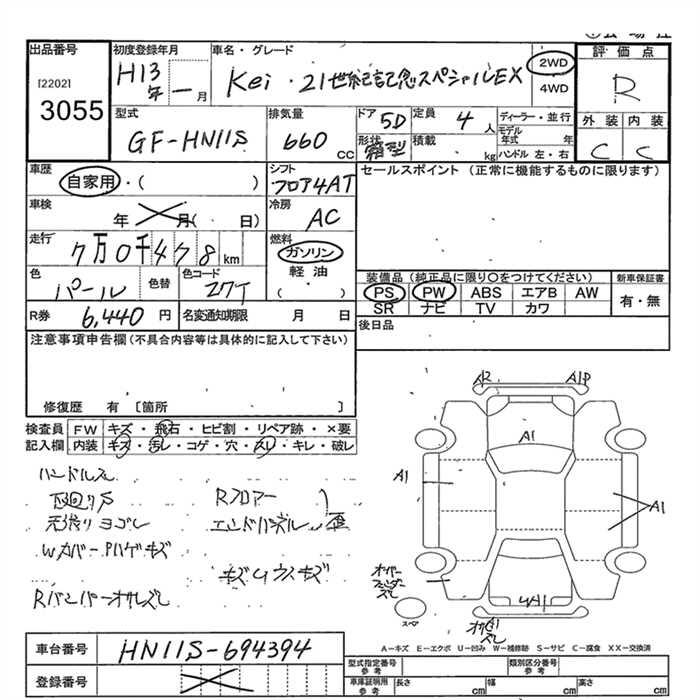 出品番号
[2202]
3055
初度登録年月
H13年 一 月
車名・グレード
Kei・21世紀記念スペシャルEX
2WD
4WD
評価点
R
外装 内装
C C
型式
GF-HN11S
排気量
660 CC
ドア 5D
形状 箱型
定員 4 人
積載 kg
ディーラー・並行
モデル年式 年
ハンドル 左・右
車歴
自家用・( )
シフト
フロア4AT
セールスポイント(正常に機能するものに限ります)
車検
年 月( 日)
冷房
AC
走行
7万0千478km
燃料
ガソリン
軽油
( )
色
パール
色替
色コード
27T
装備品(純正品に限り○をつけてください)
新車保証書
PS PW ABS エアB AW
SR ナビ TV カワ
有・無
R券 6,440 円
名変通知期限 月 日
後日品
注意事項申告欄(不具合内容等は具体的に記入して下さい)
修復歴 有 [箇所 ]
検査員記入欄
FW キズ・飛石・ヒビ割・リペア跡・×要
内装 キズ・汚し・コゲ・穴・スレ・キレ・破レ
ハンドルス
下回りS
天張りヨゴレ
WカバーPハゲキズ
Rバンパーオサレズレ
Rフロアー
エンドパネル 歪
キズUウスキズ
A2 A1P
A1
A1
A1
オーバーフェンダーズレ
スペア
WA1
オサレズレ
A-キズ E-エクボ U-凹み W-補修跡 S-サビ C-腐食 XX-交換済
車台番号 HN11S-694394
登録番号
型式指定番号 参考
類別区分番号 参考
車庫証明用 参考
長さ cm
幅 cm
高さ cm